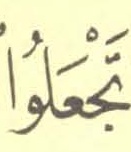 تَّجْعَلُوا۟